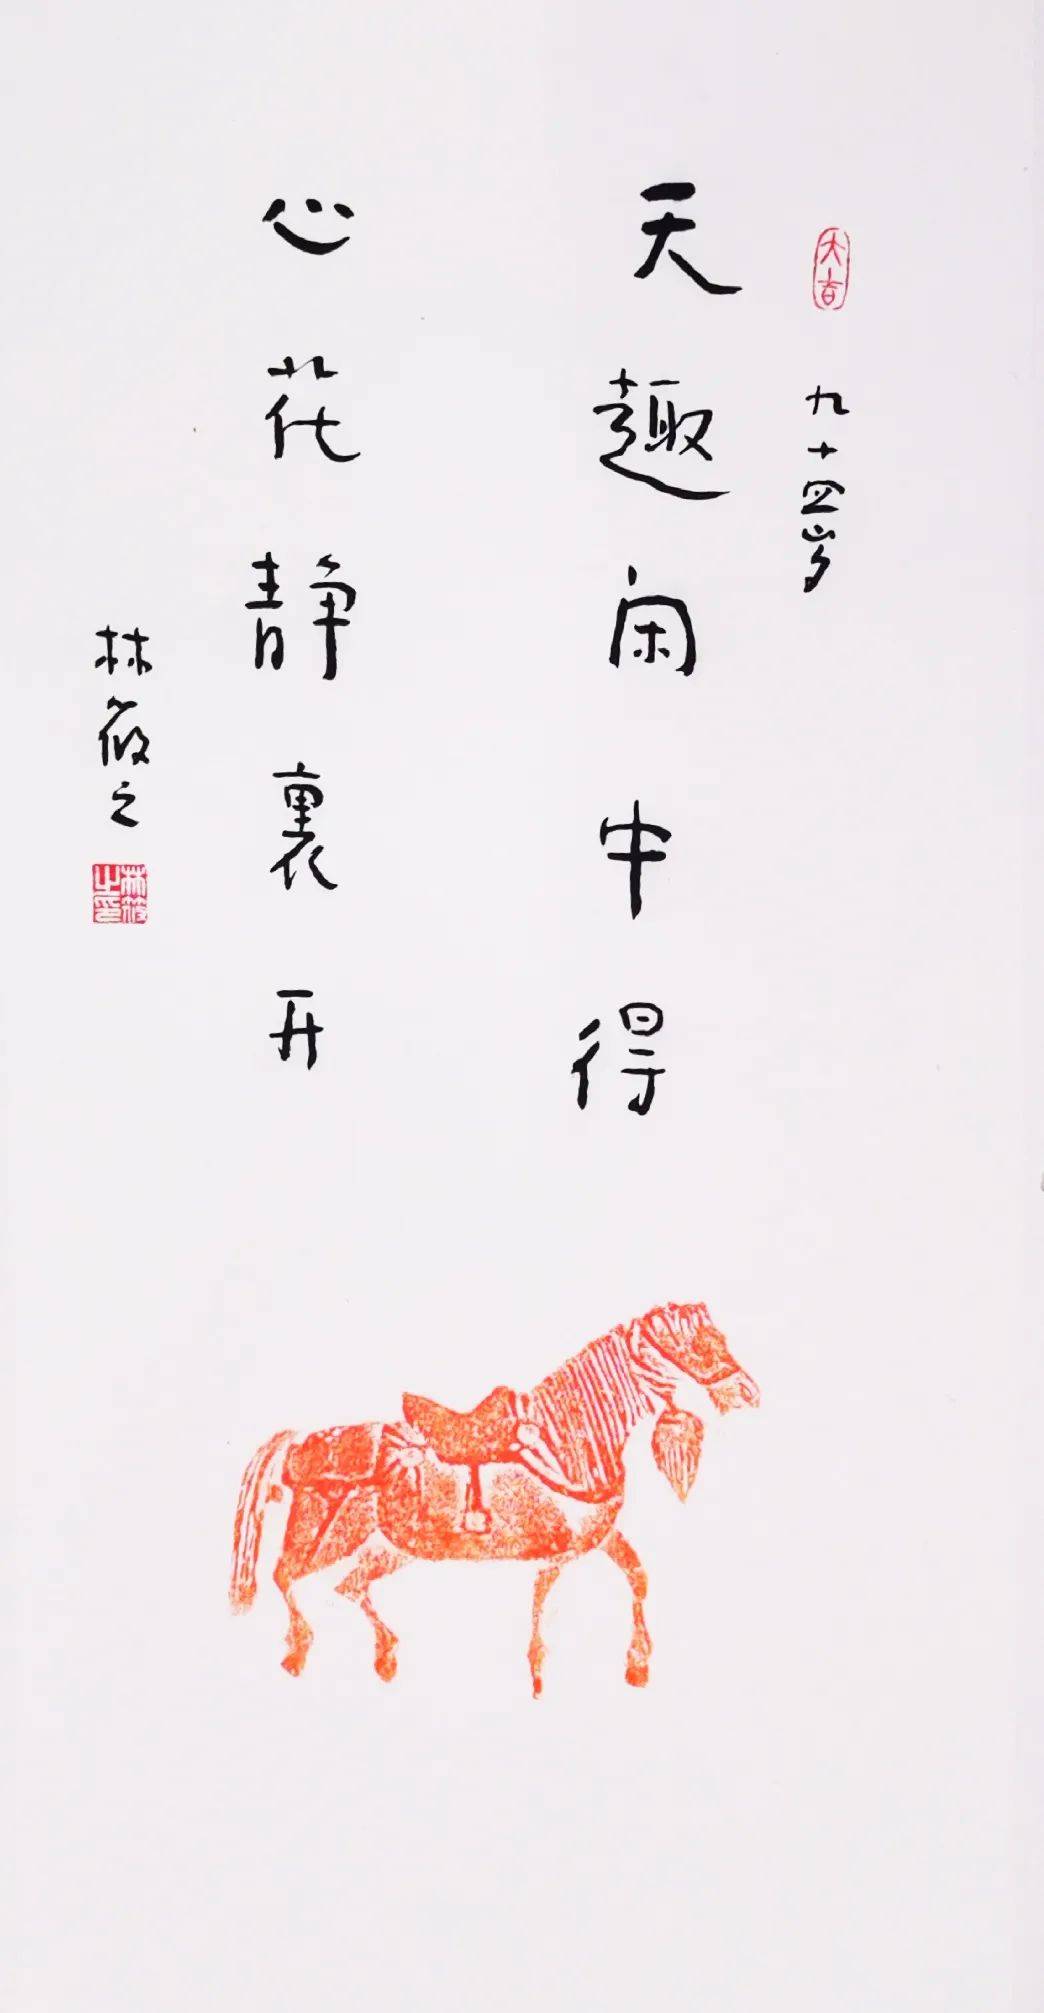 大吉
九十四岁
天趣闲中得
心花静裏开
林筱之
林筱之印